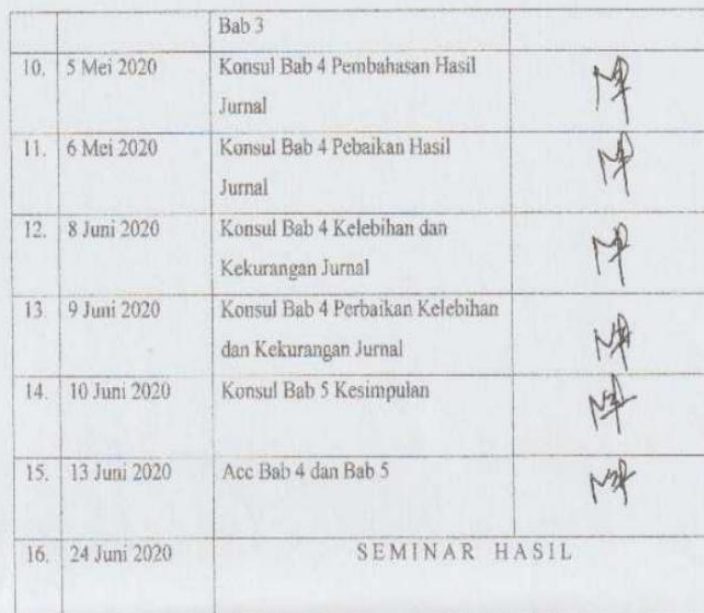 Bab 3
10. 5 Mei 2020 Konsul Bab 4 Pembahasan Hasil
Jurnal
11. 6 Mei 2020 Konsul Bab 4 Pebaikan Hasil
Jurnal
12. 8 Juni 2020 Konsul Bab 4 Kelebihan dan
Kekurangan Jurnal
13 9 Juni 2020 Konsul Bab 4 Perbaikan Kelebihan
dan Kekurangan Jurnal
14. 10 Juni 2020 Konsul Bab 5 Kesimpulan
15. 13 Juni 2020 Acc Bab 4 dan Bab 5
16. 24 Juni 2020 SEMINAR HASIL